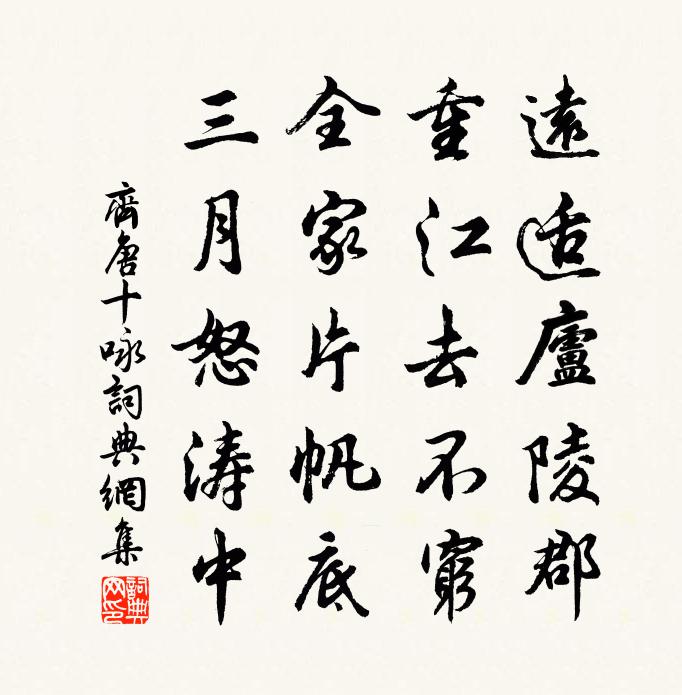 遠适廬陵郡
重江去不窮
全家片帆底
三月怒濤中
齊唐十咏詞典網集
詞典网印